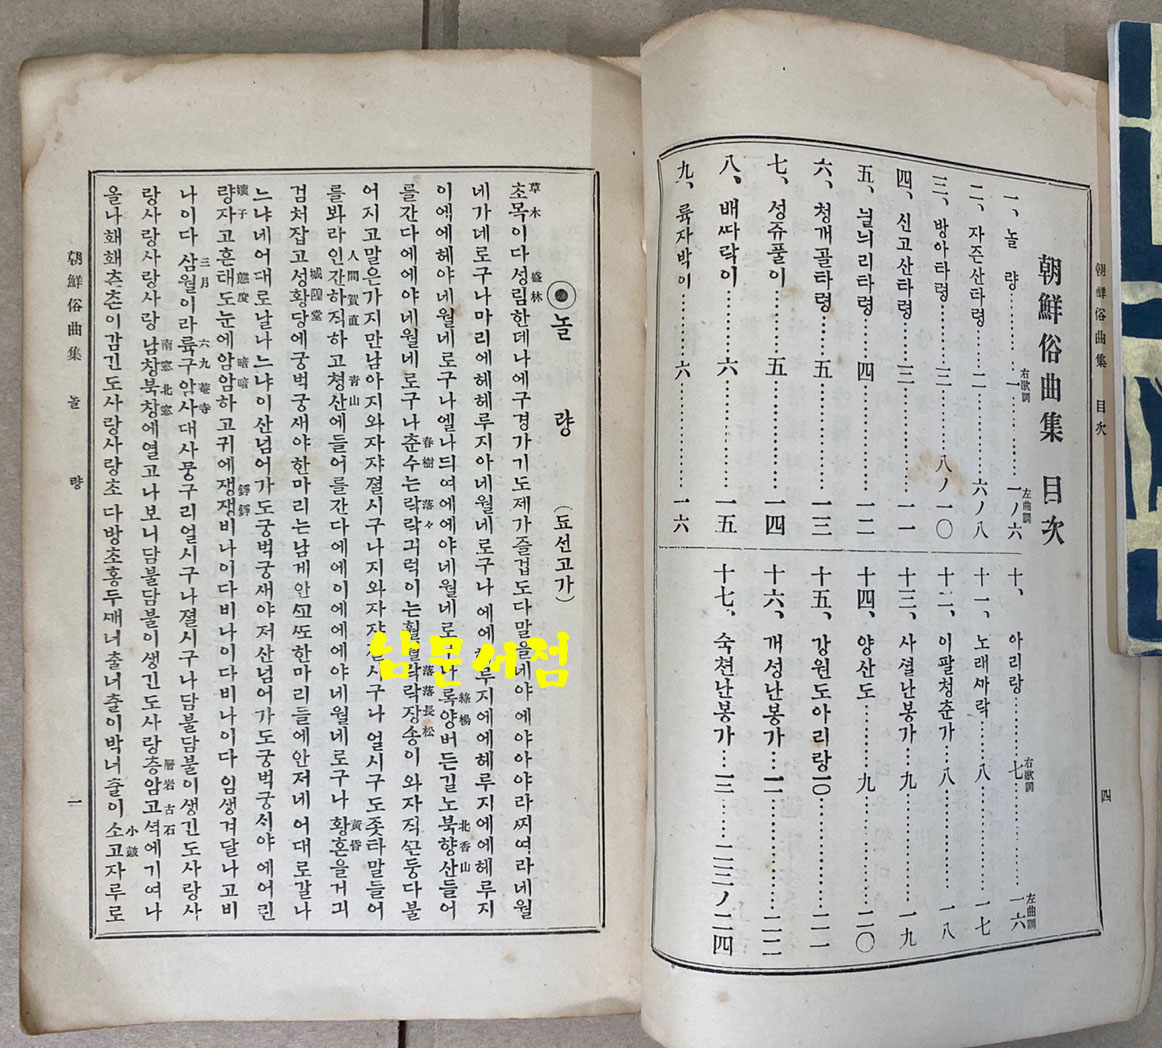 朝鮮俗曲集 目次
四
朝鮮俗曲集 目次
一、놀 량……一……一ノ六
右歌詞
左曲調
二、자즌산타령……二……六ノ八
三、방아타령……三……八ノ一〇
四、신고산타령……三……一一
五、늴늬리타령……四……一二
六、청개골타령……五……一三
七、성쥬풀이……五……一四
八、배ᄯᅡ락이……六……一五
九、륙자박이……六……一六
十、아리랑……七……一六
右歌詞
左曲調
十一、노래ᄭᅡ락……八……一七
十二、이팔청춘가……八……一八
十三、사셜난봉가……九……一九
十四、양산도……九……二〇
十五、강원도아리랑一〇……二一
十六、개성난봉가…一一……二二
十七、숙쳔난봉가…一三…二三ノ二四
놀 량 (됴선고가)
草木 盛林
초목이다성림한데나에구경가기도제가즐겁도다말을네야에야아야라ᄶᅵ여라네월
네가데로구나마리에헤헤루지아네월네로구나에에헤루지에에헤루지에에헤루지
綠楊 北香山
이에에헤야네월네로구나엘나듸여에에야네월네로구나록양버든길노북향산들어
春樹 落々 落落長松
를간다에에야네월네로구나춘수는락락긔럭이는훨훨락락장송이와자직ᄭᅳᆫ둥다불
어지고말은가지만남아지와자쟈졀시구나지와자쟈졀시구나얼시구도죳타말들어
人間賀直 靑山 黃昏
를봐라인간하직하고청산에들어를간다에에이에에에야네월네로구나황혼을거긔
城隍堂
검처잡고성황당에궁벅궁새야한마리는남게안ᄭᅩᄯᅩ한마리들에안저네어대로갈나
느냐네어대로날나느냐이산넘어가도궁벅궁새야저산넘어가도궁벅궁서야에어린
孃子 態度 暗暗 錚錚
량자고흔태도눈에암암하고귀에쟁쟁비나이다비나이다비나이다임생겨달나고비
三月 六九菴寺
나이다삼월이라륙구암사대사뭉구리얼시구나졀시구나담불담불이생긴도사랑사
南窓北窓 層岩古石
랑사랑사랑사랑남창북창에열고나보니담불담불이생긴도사랑층암고셕에기여나
小鼓
올나홰홰츤츤이감긴도사랑사랑초다방초홍두ᄭᅢ너출너출이박너출이소고자루로
朝鮮俗曲集 놀 량
一
남문서점